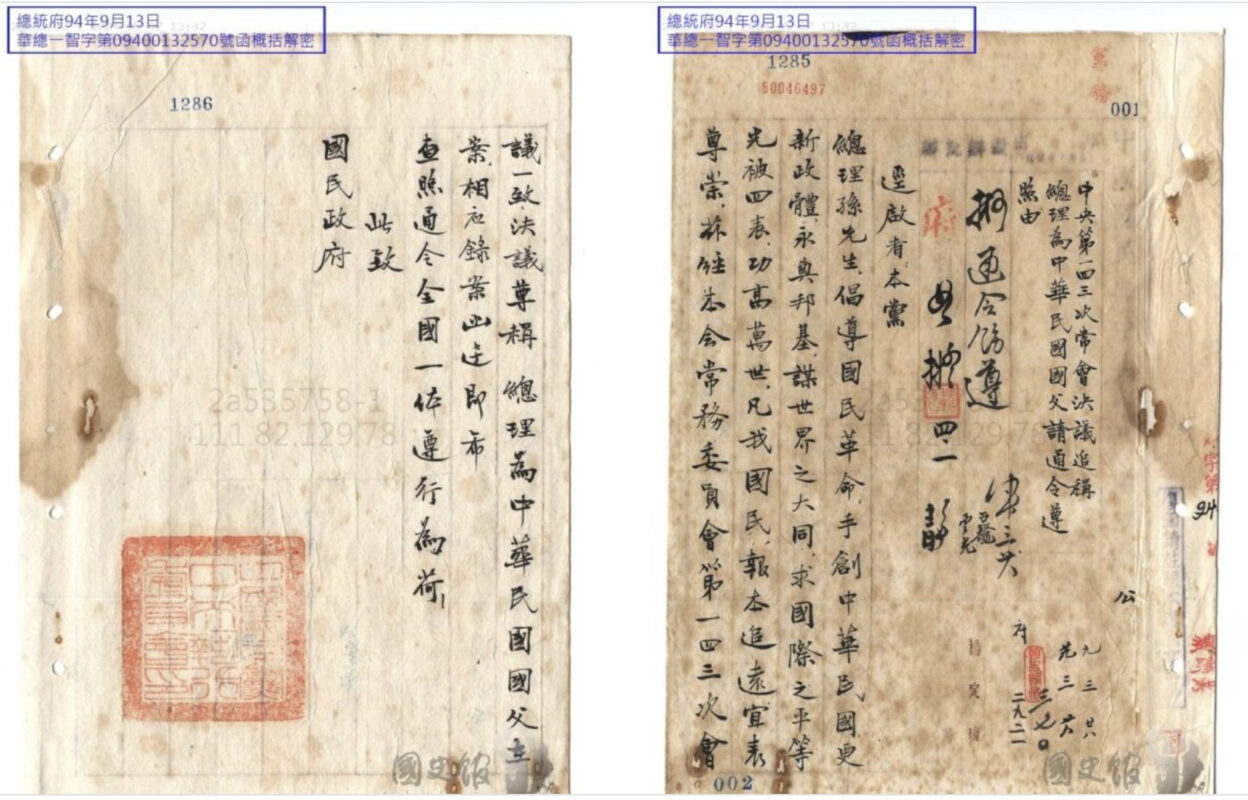 總統府94年9月13日
華總一智字第09400132570號函概括解密
1285
50046497
黨務
001
中央第一四三次常會決議追稱
總理為中華民國國父請通令遵
照由
擬通令飭遵
府
四、一
逕啟者本黨
總理孫先生倡導國民革命、手創中華民國更
新政體、永奠邦基、謀世界之大同、求國際之平等
光被四表、功高萬世、凡我國民、報本追遠宜表
尊崇、茲經本會常務委員會第一四三次會
公
002
國史館
總統府94年9月13日
華總一智字第09400132570號函概括解密
1286
議一致決議尊稱 總理為中華民國國父在
案、相應錄案函達即希
查照通令全國一体遵行為荷、
此致
國民政府
2a585758-1
111.82.129.78
國史館